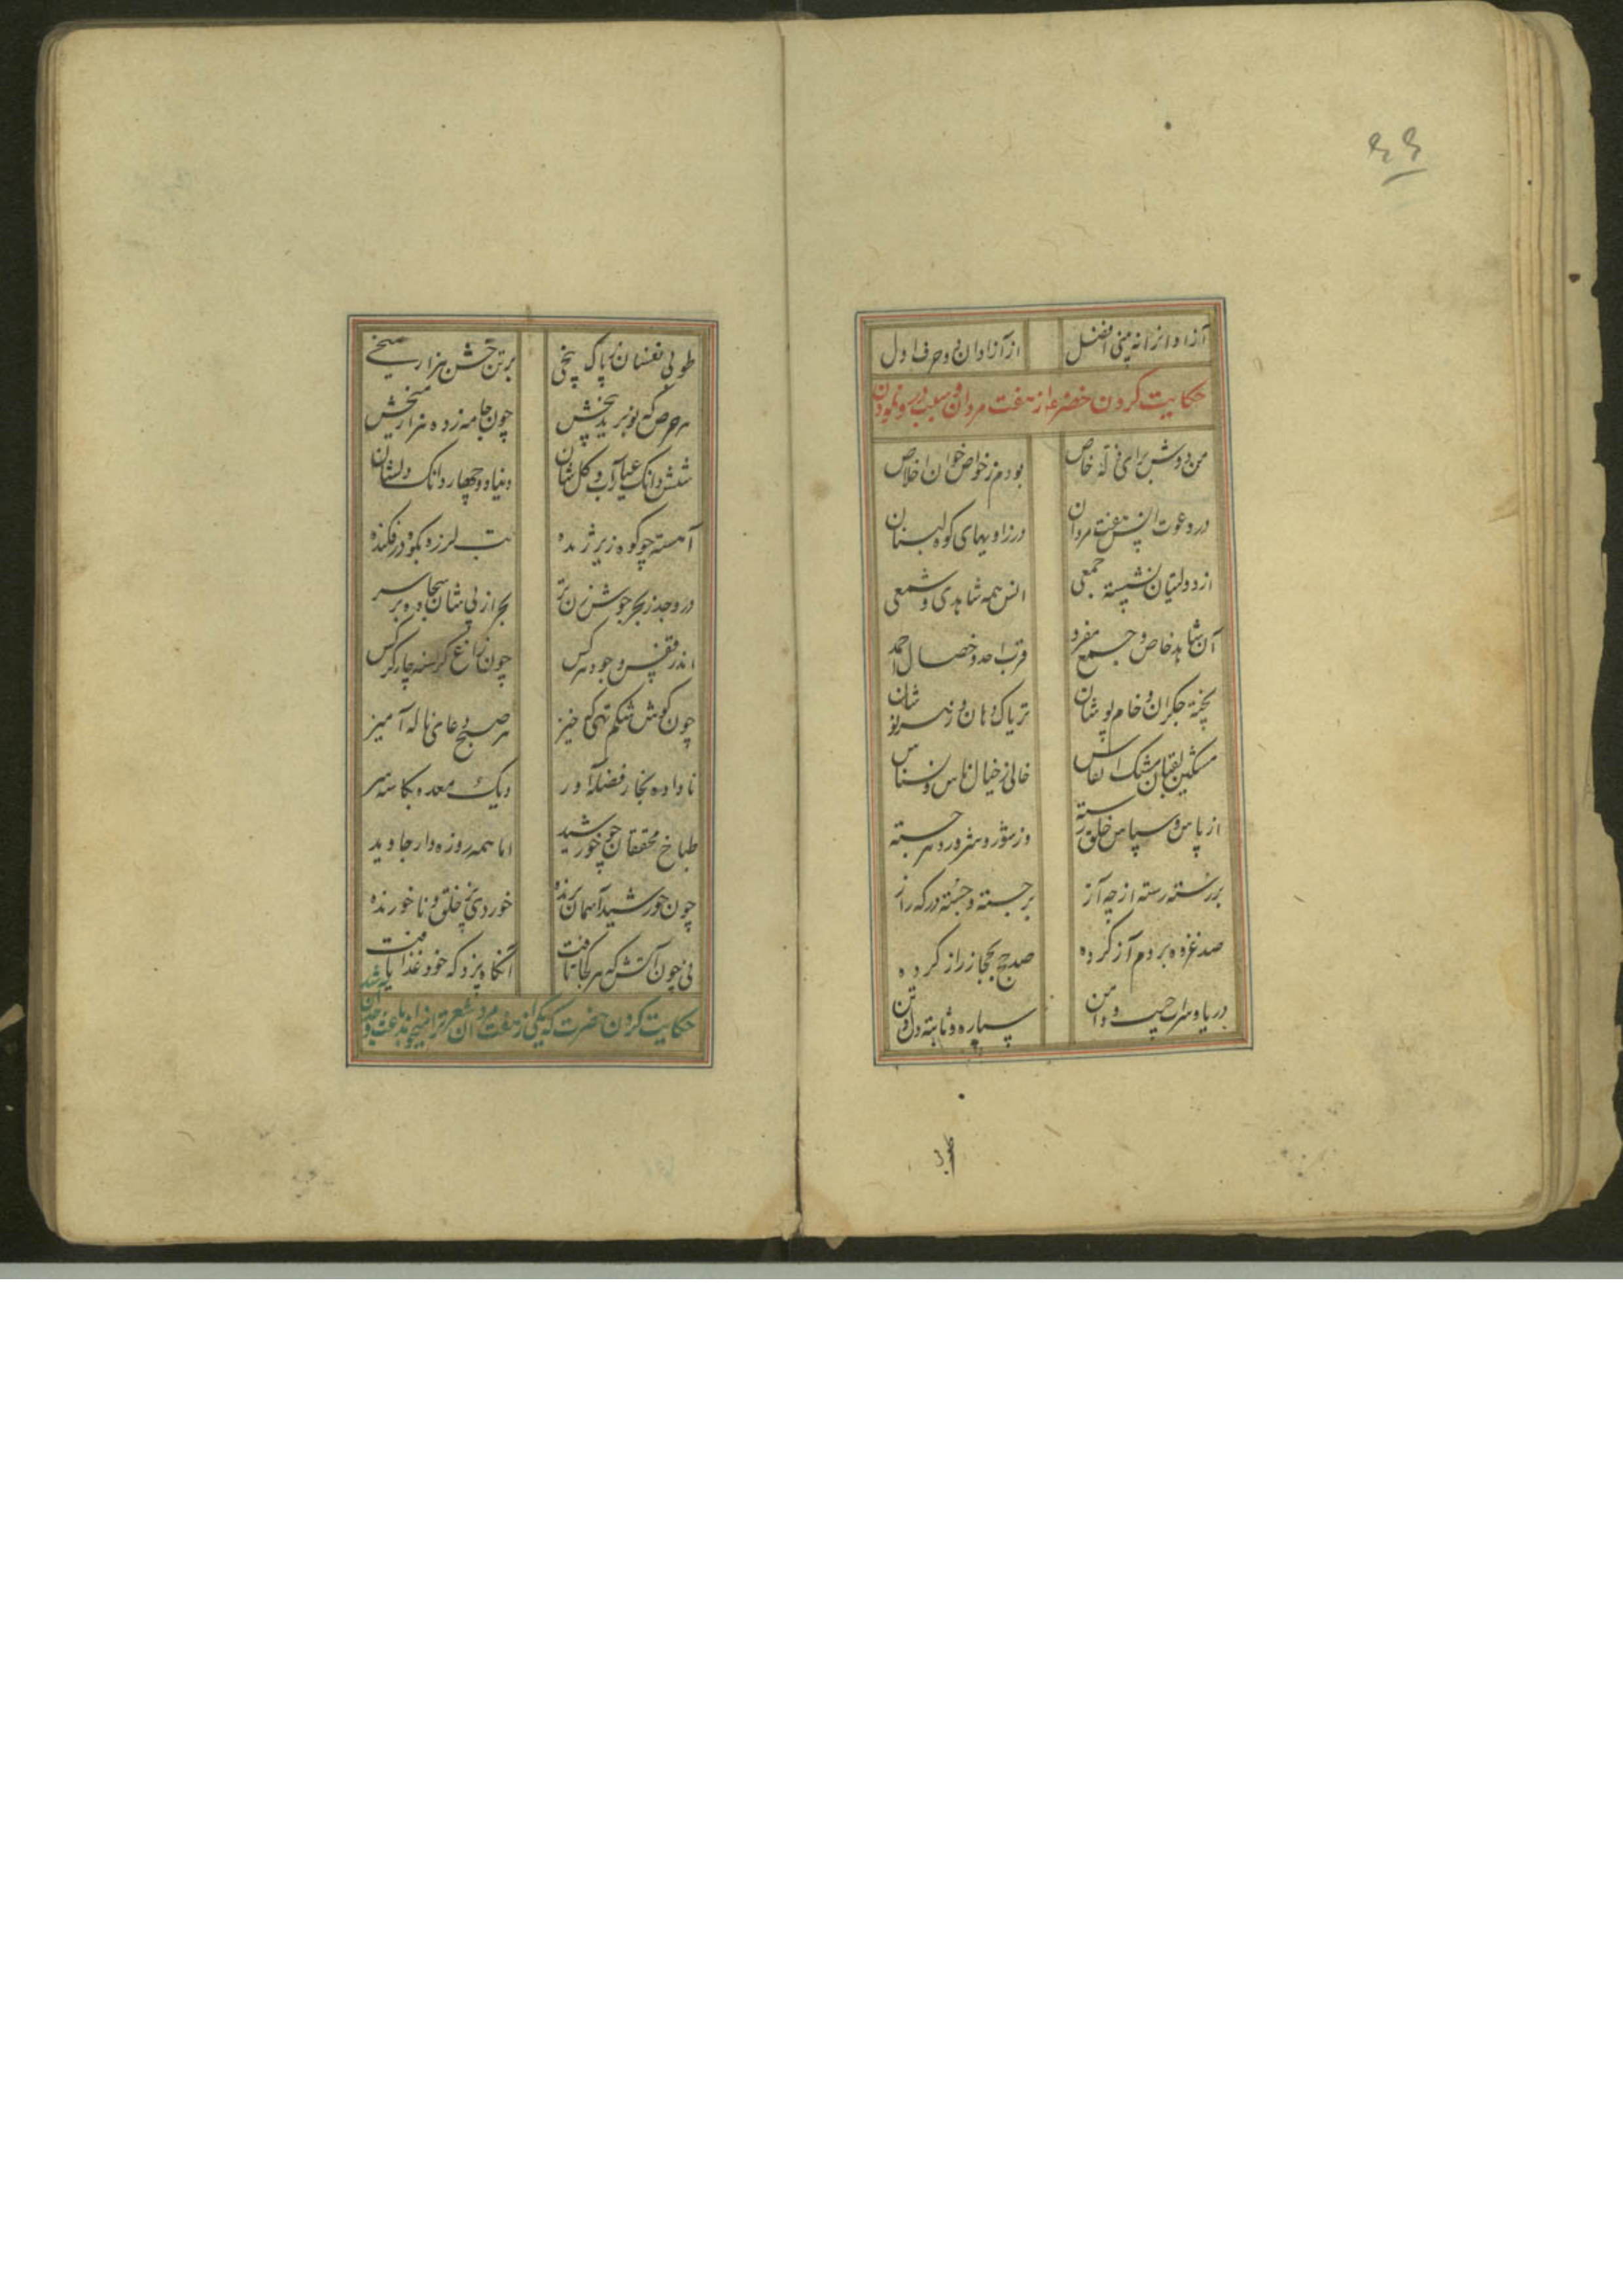 ۶۶
آزاد از آنه بینی افضل از آزادان دو حرف اول
حکایت کردن خضر ع از هفت مردان و
من دوش برای فاتحه خاص بودم ز خواص خوان اخلاص
در دعوت انس هفت مردان در زاویهای کوه لبنان
از دولتیان نشسته جمعی انس همه شاهدی و شمعی
آن شاهد خاص و جمع مفرد قرب احد و خصال احمد
پخته جگران و خام پوشان تریاک دهان و زهر نوشان
مشکین نقبان مشک انفاس خالی ز خیال ناس و نسناس
از پاس و سپاس خلق رسته وز شور و شرور و شر جسته
بر رسته رسته از چه آز بر جسته و جسته درگه راز
صد غزوه بر دم آز کرده صد حج بحجاز راز کرده
دریا و سراب جیب و دامن سیاره و ثابته دل و تن
طوبی
طوبی نفسان ز پاک بیخی بر تن خشن هزار میخی
هر حرص که نو برید بیخش چون جامه زده هزار میخش
شش دانگ عیار آب و گلشان دنیا دو چهار دانگ دلشان
آهسته چو کوه زیر ژنده تب لرزه بکوه در فکنده
در وجد ز بحر جوش زن تر بحر از پی شان سجاده بر سر
اندر قفس وجود هر کس چون زاغ گرسنه چار کرکس
چون گوش شکم تهی که خیز هر صبح دعای ناله آمیز
ناداده بخار فضله آور دیک معده بکاسه سر
طباخ محققان چو خورشید اما همه روزه دار جاوید
چون خورشید آسمان برنده خوردی پز خلق و ناخورنده
نی چون آتش که هر کجا تافت آنگاه پزد که خود غذا یافت
حکایت کردن حضرت که یکی از هفت مردان شعر ترا میخواند